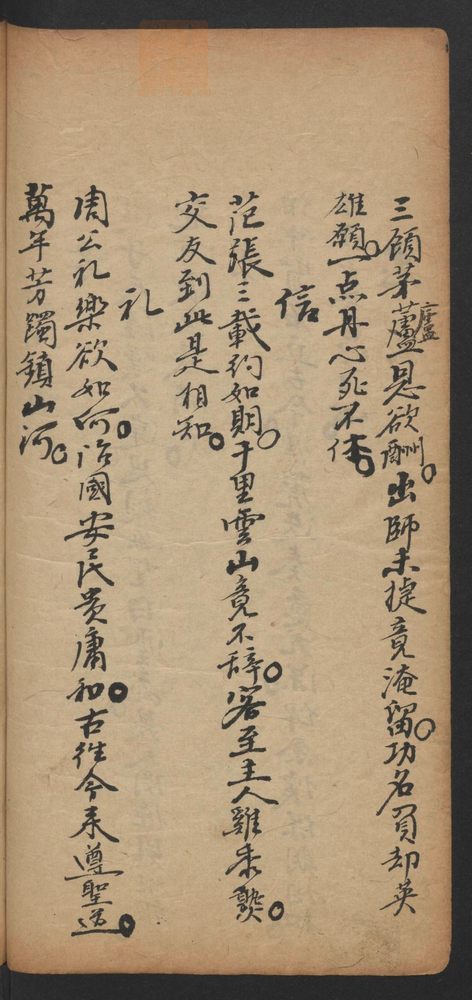 三顧茅蘆恩欲酬。出師未捷竟淹留。功名負却英
廬
雄願。一点丹心死不休。
信
范張三載約如期。千里雲山竟不辞。客至主人雞黍熟。
交友到此是相知。
礼
周公礼樂欲如何。治國安民贵庸和。古徃今来遵聖道。
萬年芳躅鎮山河。